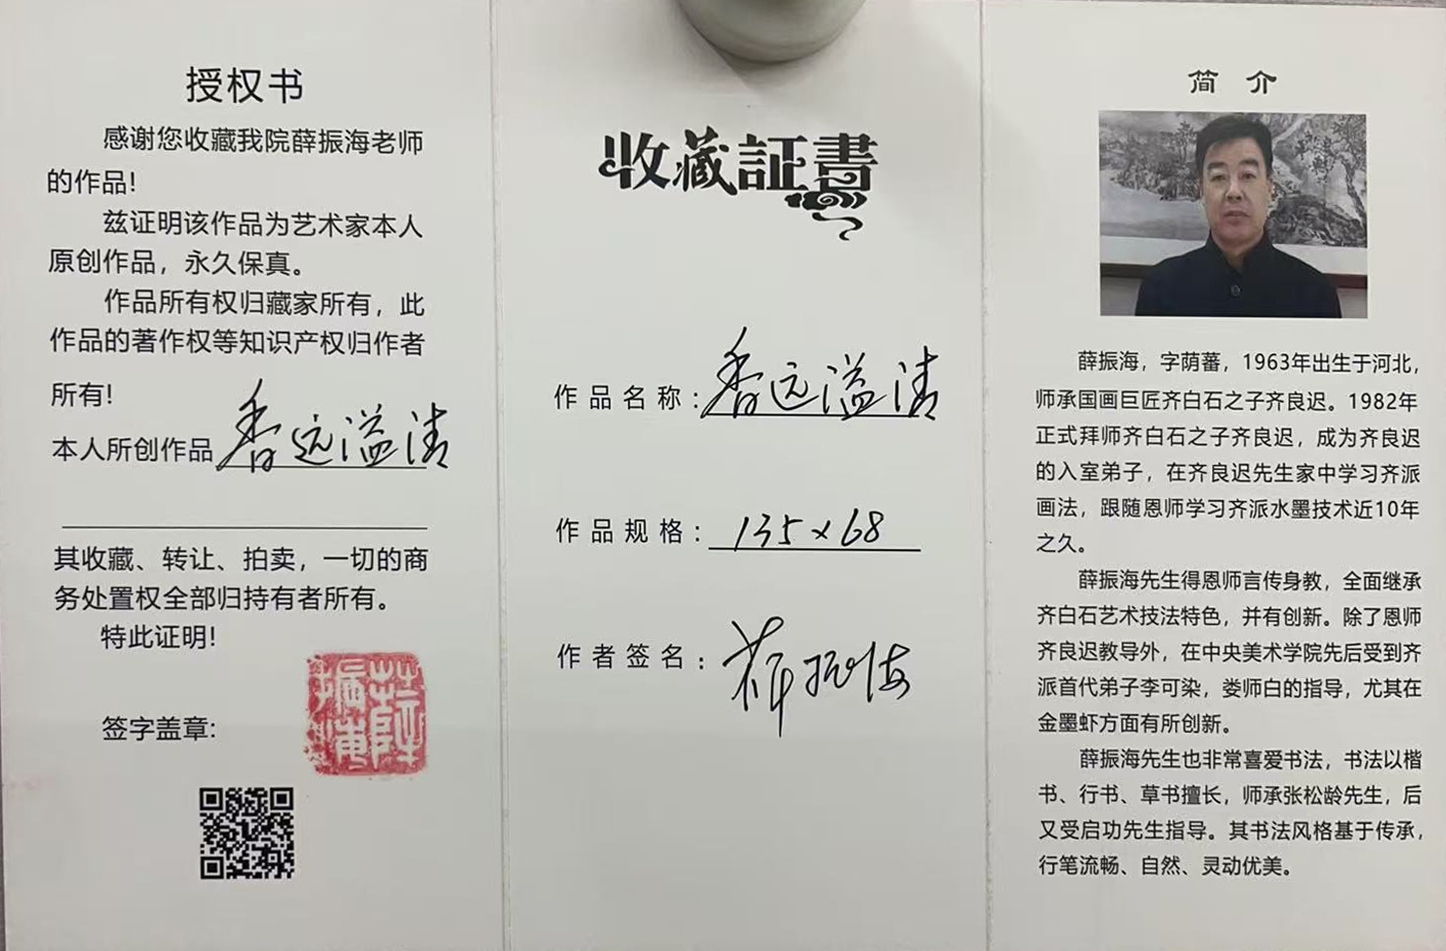 授权书
感谢您收藏我院薛振海老师
的作品!
兹证明该作品为艺术家本人
原创作品，永久保真。
作品所有权归藏家所有，此
作品的著作权等知识产权归作者
所有!
本人所创作品 香远溢清
其收藏、转让、拍卖，一切的商
务处置权全部归持有者所有。
特此证明!
签字盖章:
薛振海
收藏証書
作品名称: 香远溢清
作品规格: 135×68
作者签名: 薛振海
简 介
薛振海，字荫蕃，1963年出生于河北，
师承国画巨匠齐白石之子齐良迟。1982年
正式拜师齐白石之子齐良迟，成为齐良迟
的入室弟子，在齐良迟先生家中学习齐派
画法，跟随恩师学习齐派水墨技术近10年
之久。
薛振海先生得恩师言传身教，全面继承
齐白石艺术技法特色，并有创新。除了恩师
齐良迟教导外，在中央美术学院先后受到齐
派首代弟子李可染，娄师白的指导，尤其在
金墨虾方面有所创新。
薛振海先生也非常喜爱书法，书法以楷
书、行书、草书擅长，师承张松龄先生，后
又受启功先生指导。其书法风格基于传承，
行笔流畅、自然、灵动优美。